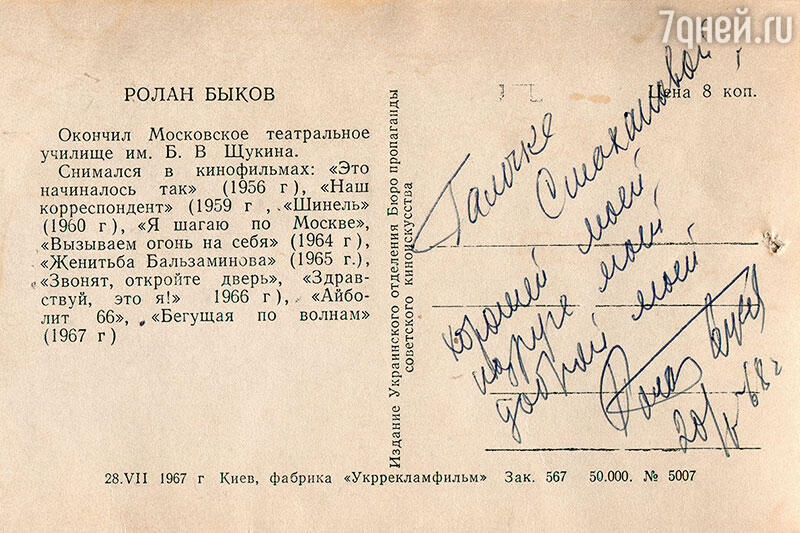 7дней.ru
РОЛАН БЫКОВ
Окончил Московское театральное
училище им. Б. В Щукина.
Снимался в кинофильмах: «Это
начиналось так» (1956 г), «Наш
корреспондент» (1959 г , «Шинель»
(1960 г), «Я шагаю по Москве»,
«Вызываем огонь на себя» (1964 г),
«Женитьба Бальзаминова» (1965 г.),
«Звонят, откройте дверь», «Здрав-
ствуй, это я!» 1966 г), «Айбо-
лит 66», «Бегущая по волнам»
(1967 г)
Издание Украинского отделения Бюро пропаганды
советского киноискусства
Цена 8 коп.
Галочке
Стахановой,
хорошей моей,
подруге моей,
доброй моей
Ролан Быков
20/IV-68 г
28.VII 1967 г Киев, фабрика «Укррекламфильм» Зак. 567 50.000. № 5007